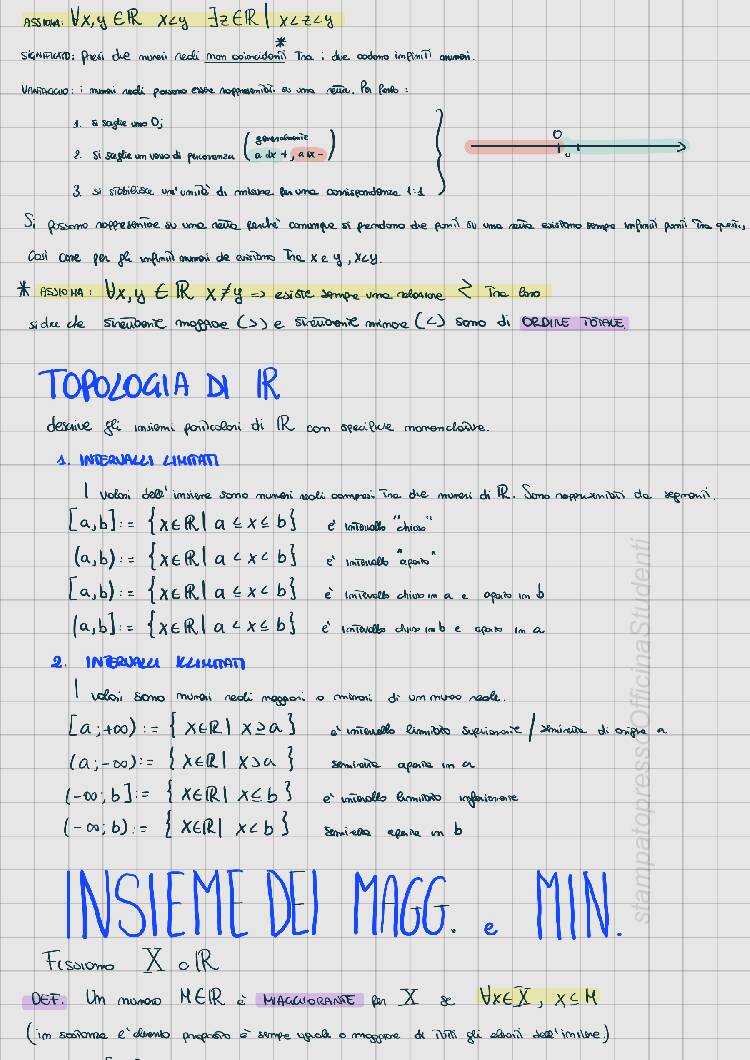 ASSIOMA: ∀x,y ∈ ℝ x<y ∃z∈ℝ | x<z<y
*
SIGNIFICATO: Presi due numeri reali non coincidenti tra i due cadono infiniti numeri.
VANTAGGIO: i numeri reali possono essere rappresentati su una retta. Per farlo:
1. si sceglie uno 0;
2. Si sceglie un verso di percorrenza (generalmente a dx +, a sx -)
3. si stabilisce un'unità di misura per una corrispondenza 1:1
0
u
Si possono rappresentare su una retta perché comunque si prendono due punti su una retta esistono sempre infiniti punti tra questi,
Così come per gli infiniti numeri che esistono tra x e y, x<y.
* ASSIOMA: ∀x,y ∈ ℝ x≠y => esiste sempre una relazione ≷ tra loro
si dice che strettamente maggiore (>) e strettamente minore (<) sono di ORDINE TOTALE
TOPOLOGIA DI ℝ
descrive gli insiemi particolari di ℝ con specifiche
1. INTERVALLI LIMITATI
I valori dell'insieme sono numeri reali compresi tra due numeri di ℝ. Sono rappresentati da segmenti.
[a,b]:= {x∈ℝ| a ≤ x ≤ b} è intervallo "chiuso"
(a,b):= {x∈ℝ| a < x < b} è intervallo "aperto"
[a,b):= {x∈ℝ| a ≤ x < b} è intervallo chiuso in a e aperto in b
(a,b]:= {x∈ℝ| a < x ≤ b} è intervallo chiuso in b e aperto in a
2. INTERVALLI ILLIMITATI
I valori sono numeri reali maggiori o minori di un numero reale.
[a;+∞):= { x∈ℝ| x≥a } è intervallo illimitato superiormente / semiretta di origine a
(a;-∞):= { x∈ℝ| x>a } semiretta aperta in a
(-∞;b]:= { x∈ℝ| x≤b } è intervallo illimitato inferiormente
(-∞;b):= { x∈ℝ| x<b } semiretta aperta in b
INSIEME DEI MAGG. e MIN.
Fissiamo X ⊂ ℝ
DEF. Un numero M∈ℝ è MAGGIORANTE per X se ∀x∈X, x≤M
(in sostanza l'elemento proposto è sempre uguale o maggiore di tutti gli elementi dell'insieme)
stampatopressoOfficinaStudenti